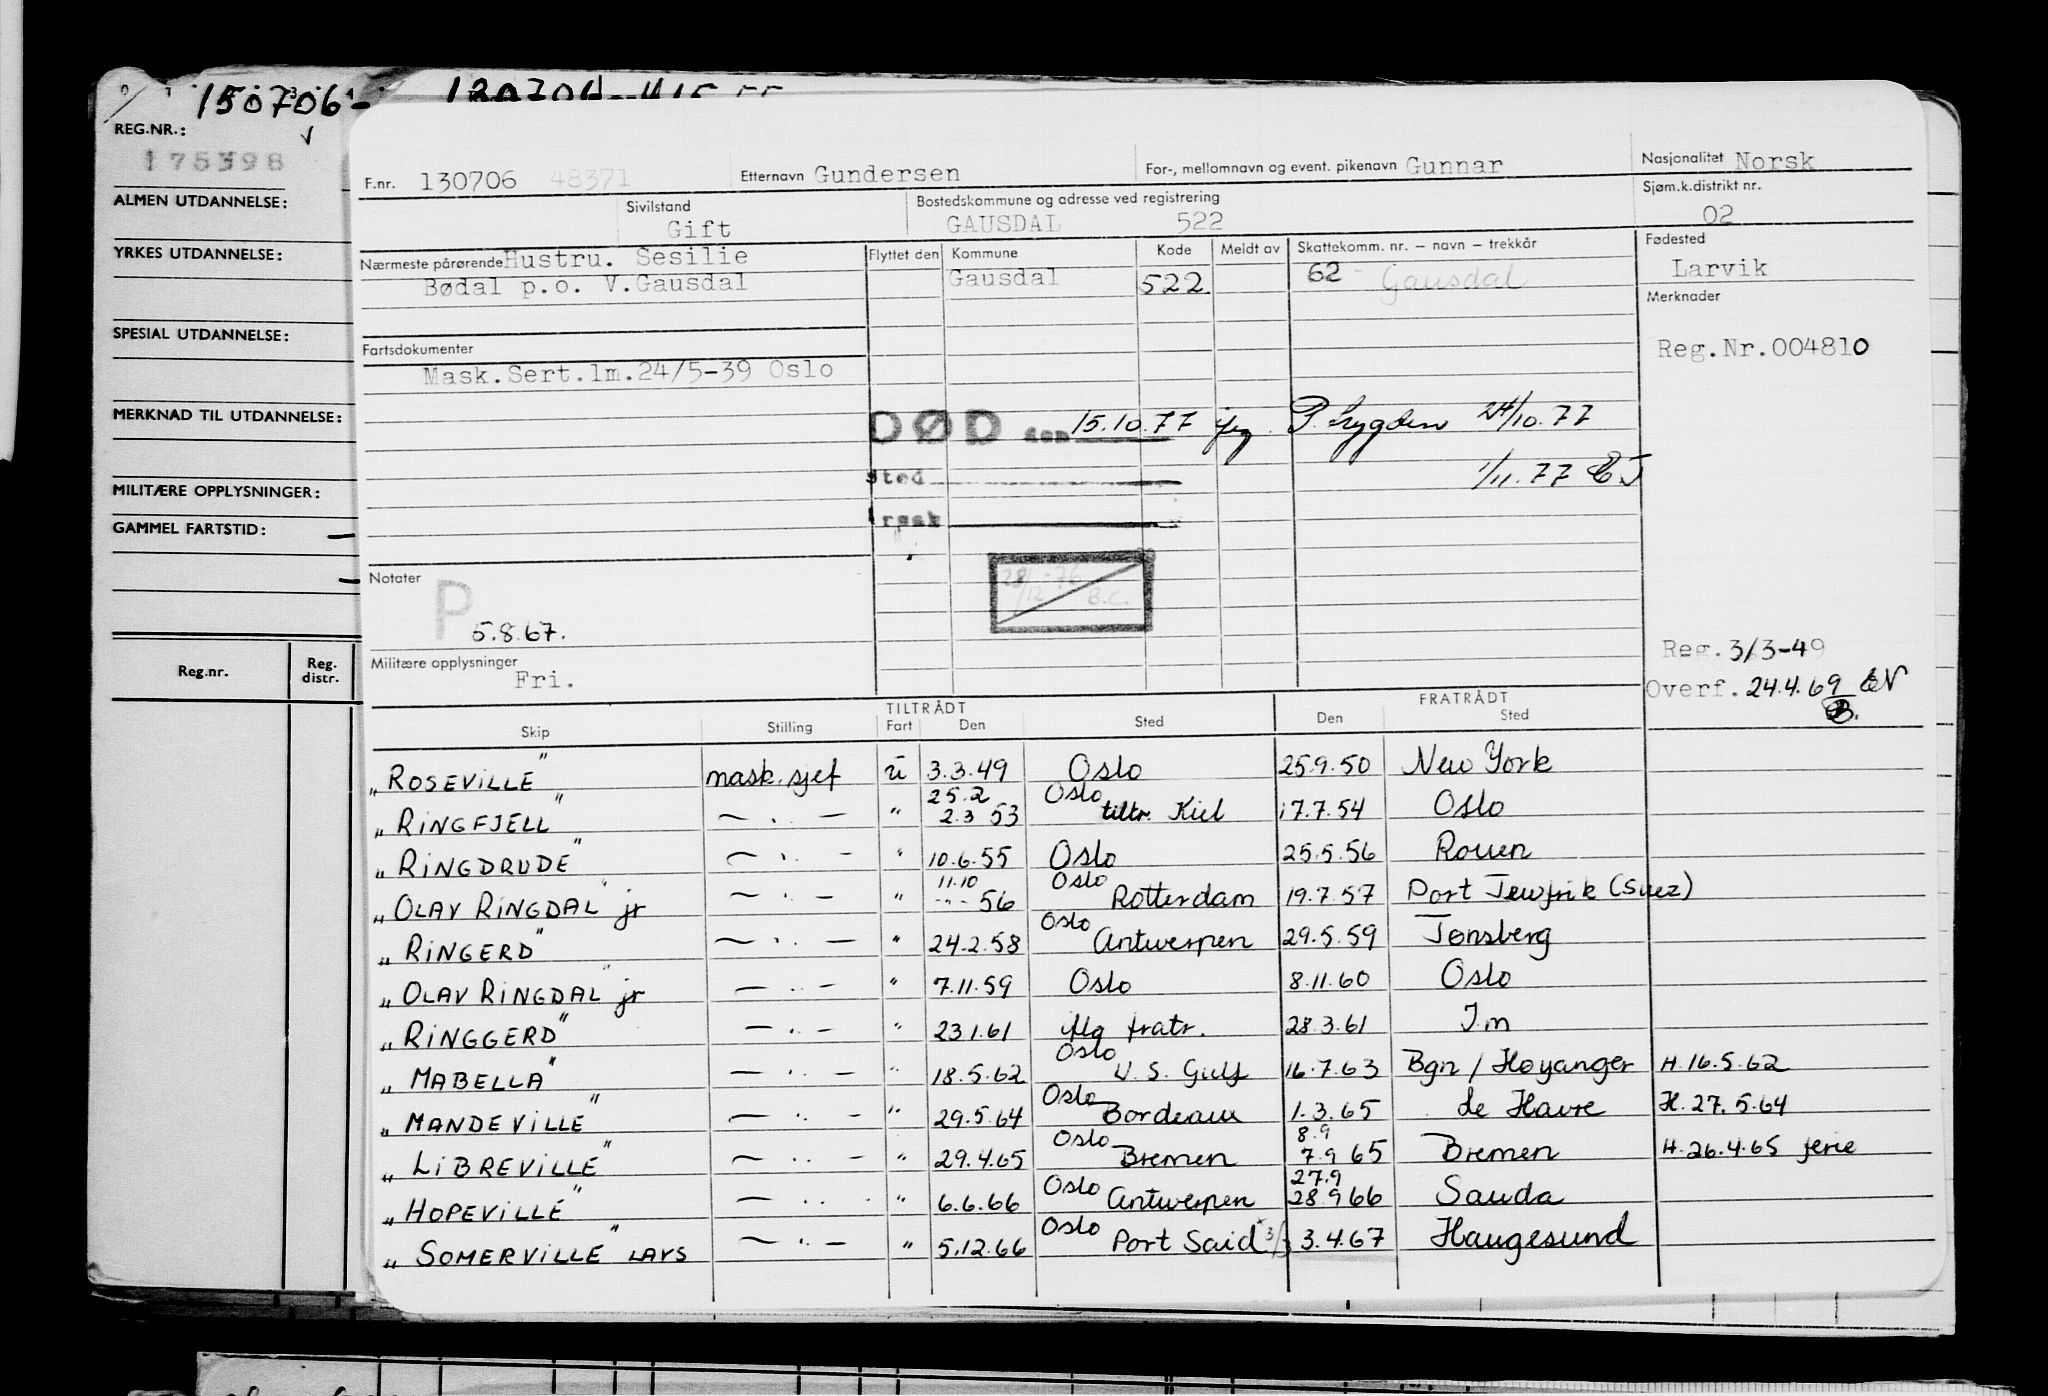 150706-
REG.NR.:
175398
ALMEN UTDANNELSE:
YRKES UTDANNELSE:
SPESIAL UTDANNELSE:
MERKNAD TIL UTDANNELSE:
MILITÆRE OPPLYSNINGER:
GAMMEL FARTSTID:
Reg.nr. Reg. distr.
F.nr. 130706 48371 Etternavn Gundersen For-, mellomnavn og event. pikenavn Gunnar Nasjonalitet Norsk
Sivilstand Gift Bostedskommune og adresse ved registrering GAUSDAL 522 Sjøm.k.distrikt nr. 02
Nærmeste pårørende Hustru. Sesilie
Bødal p.o. V.Gausdal
Flyttet den Kommune Kode Meldt av Skattekomm. nr. – navn – trekkår
Gausdal 522 62 - Gausdal
Fødested
Larvik
Merknader
Reg.Nr.004810
Fartsdokumenter
Mask.Sert.lm.24/5-39 Oslo
DØD den 15.10.77 P.trygden 24/10.77
sted 1/11.77
årsak
28/12-76 B.C.
Notater
P 5.8.67.
Militære opplysninger
Fri.
Reg. 3/3-49
Overf. 24.4.69
TILTRÅDT FRATRÅDT
Skip Stilling Fart Den Sted Den Sted
„ROSEVILLE" mask.sjef u 3.3.49 Oslo 25.9.50 New York
„RINGFJELL" — . — " 25.2 2.3 53 Oslo tiltr. Kiel 17.7.54 Oslo
„RINGDRUDE" — . — " 10.6.55 Oslo 25.5.56 Rouen
„OLAV RINGDAL" jr — . — " 11.10 -"- 56 Oslo Rotterdam 19.7.57 Port Tewfik (Suez)
„RINGERD" — . — " 24.2.58 Oslo Antwerpen 29.5.59 Tønsberg
„OLAV RINGDAL" jr — . — " 7.11.59 Oslo 8.11.60 Oslo
„RINGGERD" — . — " 23.1.61 iflg fratr. 28.3.61 I.m
„MABELLA" — . — " 18.5.62 Oslo U.S. Gulf 16.7.63 Bgn / Høyanger H.16.5.62
„MANDEVILLE" — . — " 29.5.64 Oslo Bordeaux 1.3.65 le Havre H.27.5.64
„LIBREVILLE" — . — " 29.4.65 Oslo Bremen 8.9 7.9 65 Bremen H.26.4.65 ferie
„HOPEVILLE" — . — " 6.6.66 Oslo Antwerpen 27.9 28.9 66 Sauda
„SOMERVILLE" LAVS — . — " 5.12.66 Oslo Port Said 3.4.67 Haugesund